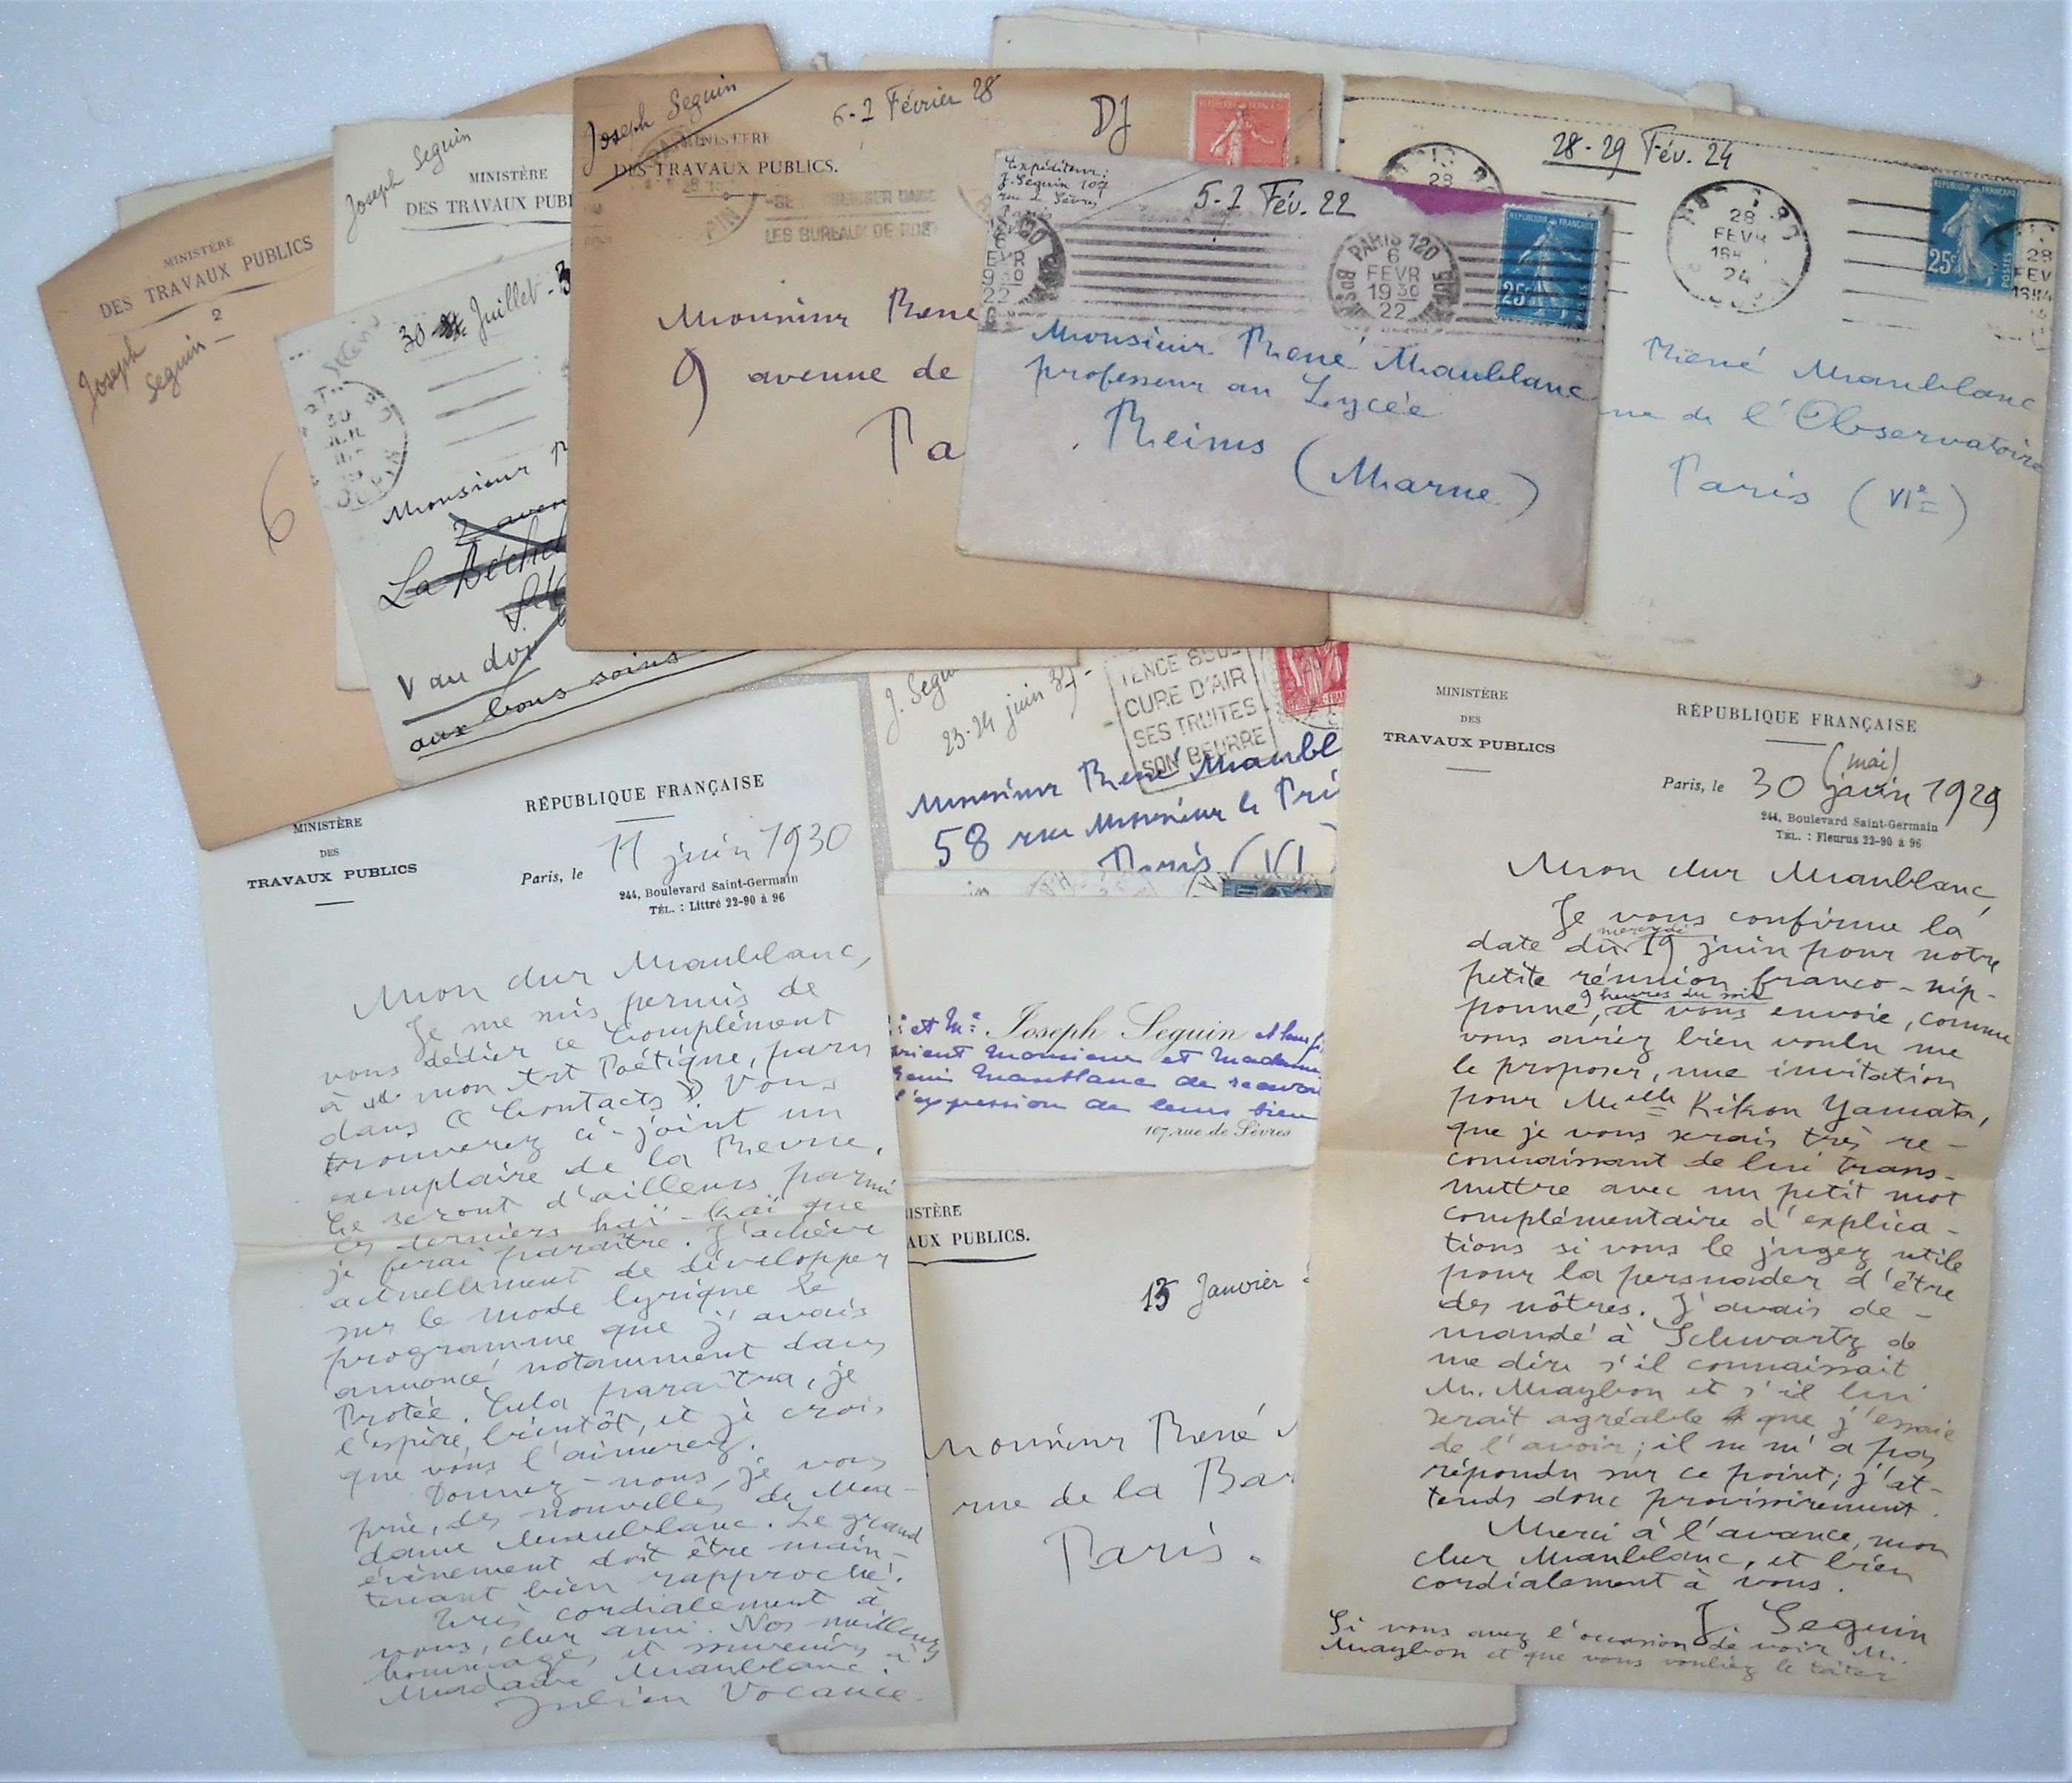 MINISTÈRE
DES TRAVAUX PUBLICS
2
Joseph
Seguin
6
Joseph Seguin
MINISTÈRE
DES TRAVAUX PUBL
30 Juillet - 3
Monsieur
La Béchel
V au dos
aux bons soins
Joseph Seguin
6-2 Février 28
DJ
MINISTÈRE
DES TRAVAUX PUBLICS.
LES BUREAUX DE POST
Monsieur Rene
9 avenue de
Pa
Expéditeur:
J. Seguin 107
rue de Sèvres
Paris
5-2 Fév. 22
PARIS 120
6
FEVR
1930
22
REPUBLIQUE FRANÇAISE
25c
Monsieur René Maublanc
professeur au Lycée
Reims (Marne)
28-29 Fév. 24
28
FEVR
24
25c
POSTES
René Maublanc
ue de l'Observatoire
Paris (VIe)
J. Segu
23-24 juin 37-
CURE D'AIR
SES TRUITES
SON BEURRE
Monsieur René Maubl
58 rue Monsieur le Pri
Paris (VI
et Me Joseph Seguin et leur fi
prient Monsieur et Madame
René Maublanc de recevoi
l'expression de leurs bien
107, rue de Sèvres
ISTÈRE
AUX PUBLICS.
15 Janvier
Monsieur René
rue de la Bar
Paris.
MINISTÈRE
DES
TRAVAUX PUBLICS
RÉPUBLIQUE FRANÇAISE
Paris, le 11 juin 1930
244, Boulevard Saint-Germain
TÉL. : Littré 22-90 à 96
Mon cher Maublanc,
Je me suis permis de
vous dédier ce Complément
à mon Art Poétique, paru
dans "Contacts". Vous
trouverez ci-joint un
exemplaire de la Revue.
Ce seront d'ailleurs parmi
les derniers haï-kaï que
je ferai paraître. J'achève
actuellement de développer
sur le mode lyrique le
programme que j'avais
annoncé notamment dans
Protée. Cela paraîtra, je
l'espère, bientôt, et je crois
que vous l'aimerez.
Donnez-nous, je vous
prie, des nouvelles de Ma-
dame Maublanc. Le grand
évènement doit être main-
tenant bien rapproché.
Très cordialement à
vous, cher ami. Nos meilleurs
hommages et souvenirs à
Madame Maublanc.
Julien Vocance.
MINISTÈRE
DES
TRAVAUX PUBLICS
RÉPUBLIQUE FRANÇAISE
(mai)
Paris, le 30 juin 1929
244, Boulevard Saint-Germain
TÉL. : Fleurus 22-90 à 96
Mon cher Maublanc,
Je vous confirme la
mercredi
date du 19 juin pour notre
petite réunion franco-nip-
9 heures du soir
ponne, et vous envoie, comme
vous aviez bien voulu me
le proposer, une invitation
pour Melle Kikou Yamata,
que je vous serais très re-
connaissant de lui trans-
mettre avec un petit mot
complémentaire d'explica-
tions si vous le jugez utile
pour la persuader d'être
des nôtres. J'avais de-
mandé à Schwartz de
me dire s'il connaissait
M. Maybon et s'il lui
serait agréable que j'essaie
de l'avoir; il ne m'a pas
répondu sur ce point; j'at-
tends donc provisoirement.
Merci à l'avance, mon
cher Maublanc, et bien
cordialement à vous.
J. Seguin
Si vous avez l'occasion de voir M.
Maybon et que vous vouliez le tâter